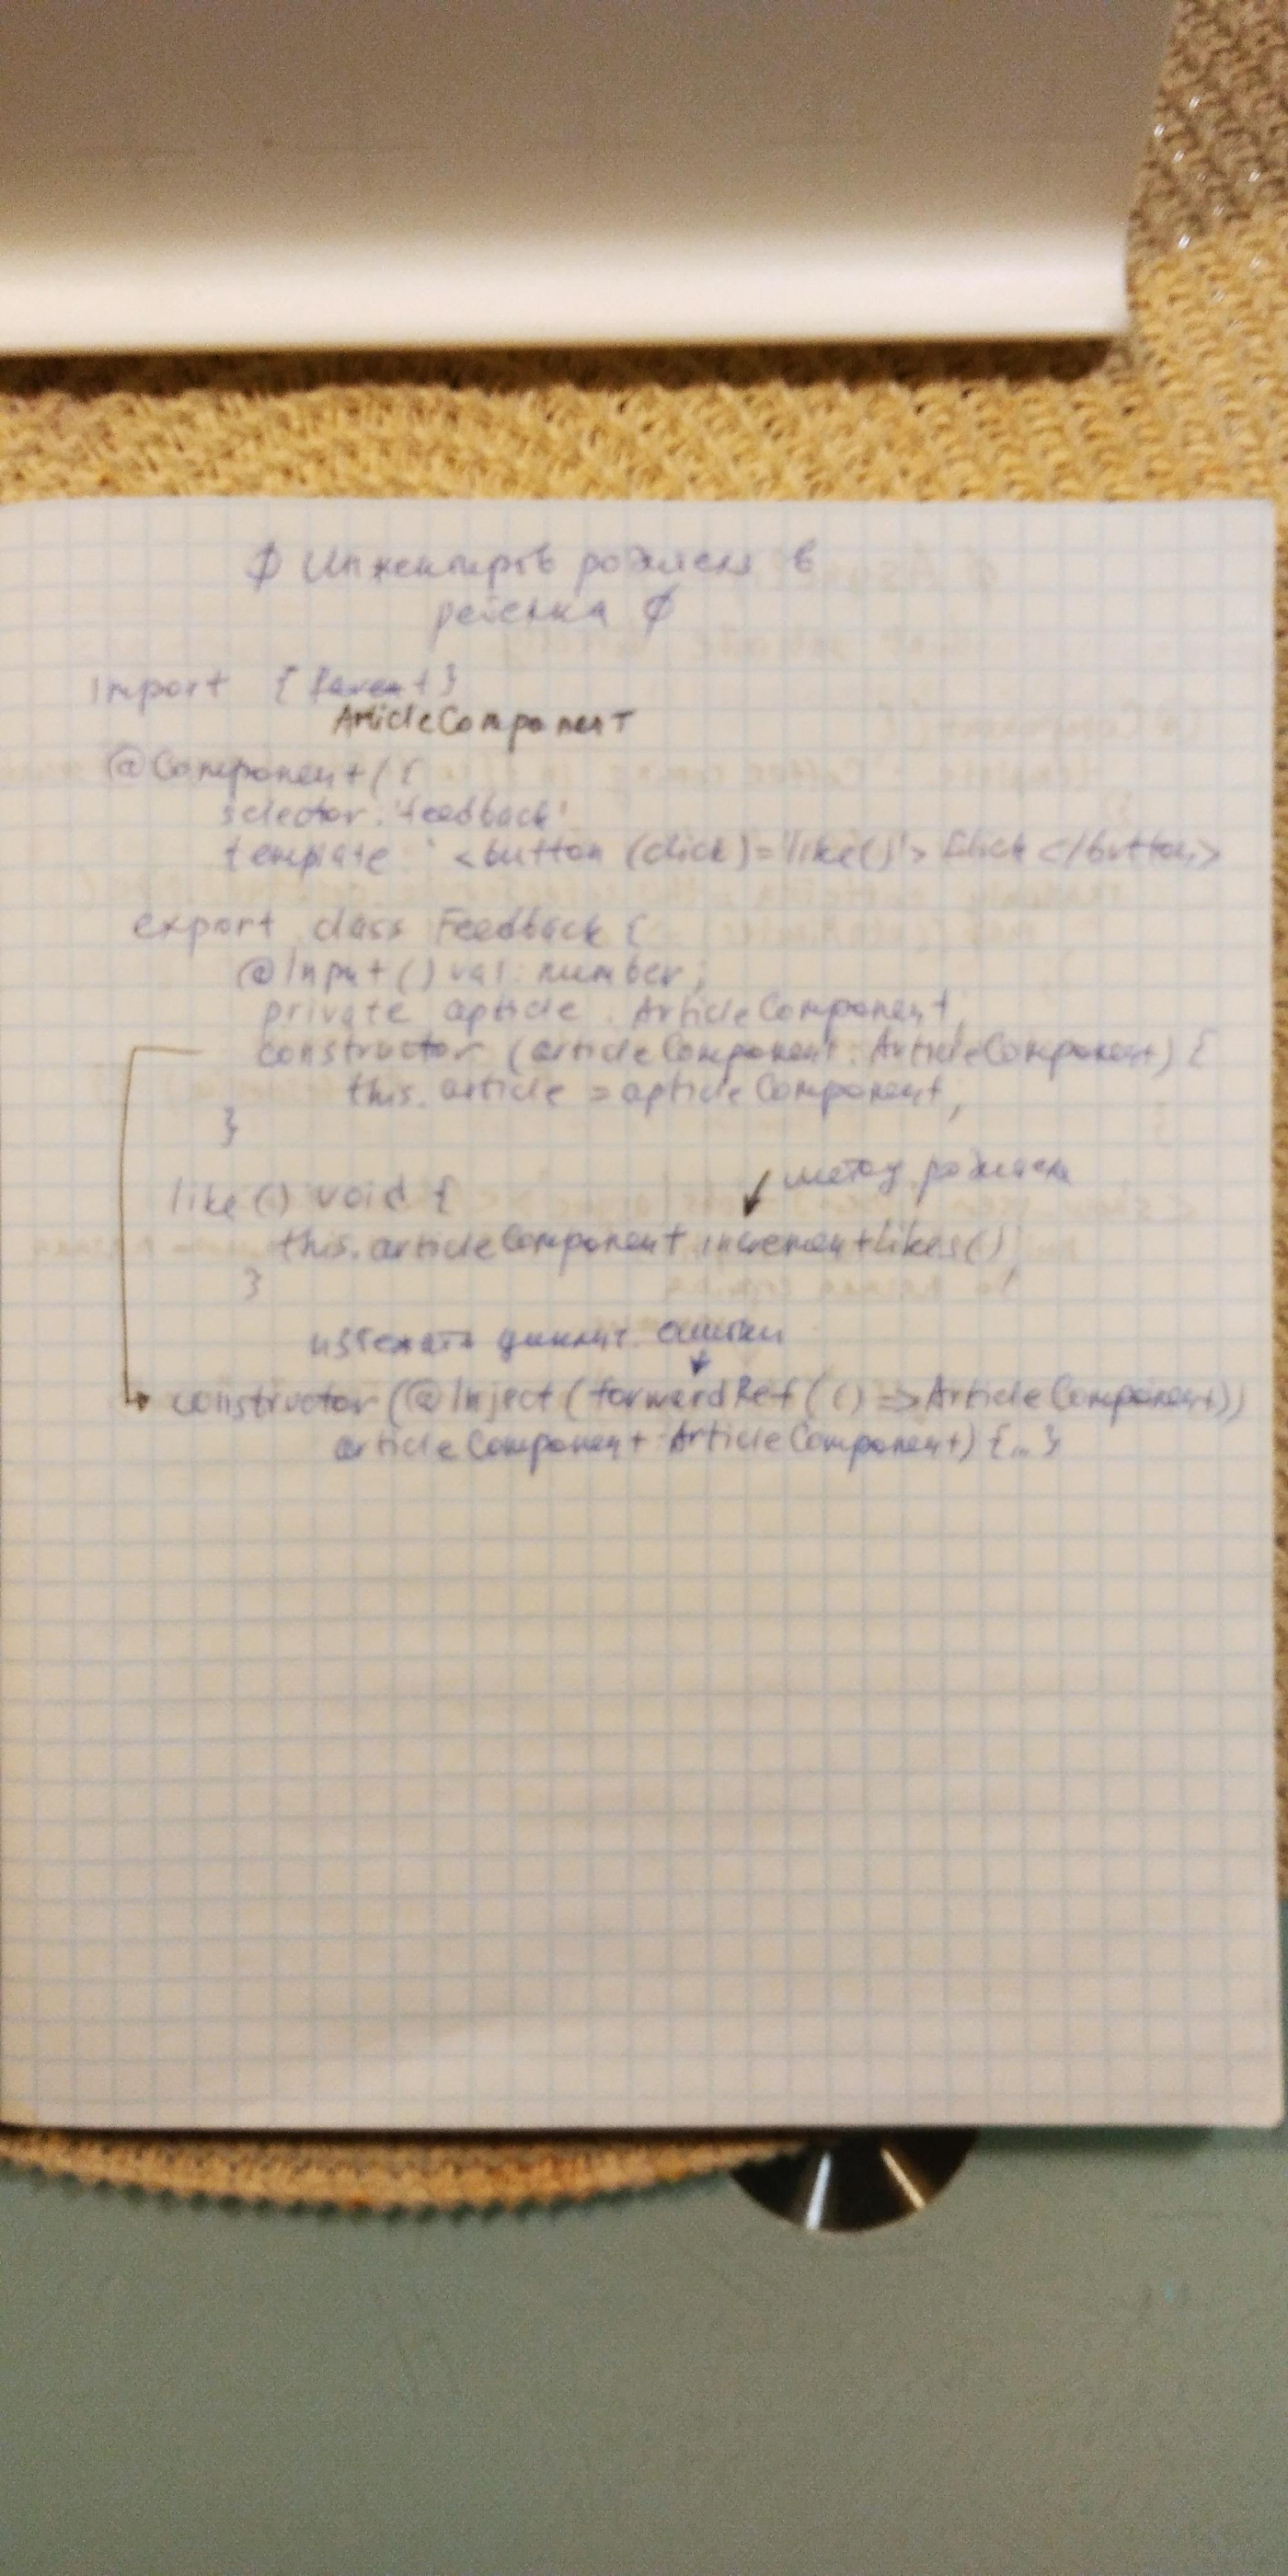 ∅ Инжектиров родителя в
ребенка ∅
import { Parent }
ArticleComponent
@Component({
selector: 'feedback'
template: ` <button (click)='like()'> Click </button>
export class Feedback {
@Input() val: number;
private article: ArticleComponent
constructor (articleComponent: ArticleComponent) {
this.article = articleComponent;
}
метод родителя
like() void {
this.articleComponent.incrementLikes()
}
избежать циклич. ошибки
constructor (@Inject (forwardRef (() => ArticleComponent))
articleComponent: ArticleComponent) {...}